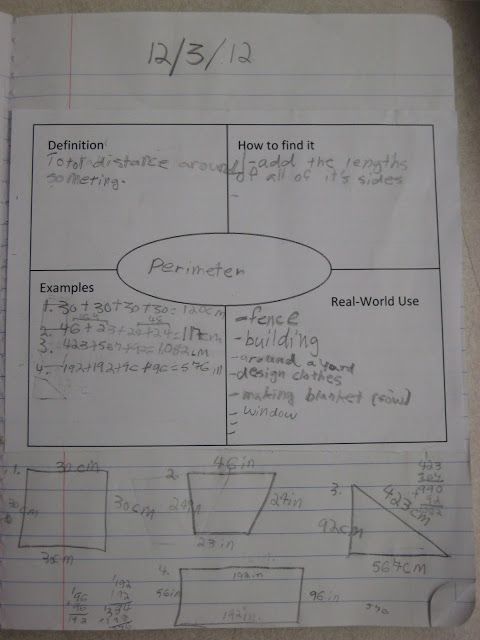 12/3/12
Definition
Total distance around
someting.
How to find it
-add the lengths
of all of it's sides
Perimeter
Examples
1. 30+30+30+30=120cm
2. 46+23+24+24=117cm
3. 423+567+92=1,082cm
4. 192+192+96+96=576in
Real-World Use
-fence
-building
-around a yard
-design clothes
-making blanket (sow)
-window
1.
30 cm
30 cm
30cm
30cm
2.
46 in
24in
24in
23in
3.
423 cm
92cm
567cm
423
+990
92
4.
192in
96in
96in
192in
196
+96
192
192
192